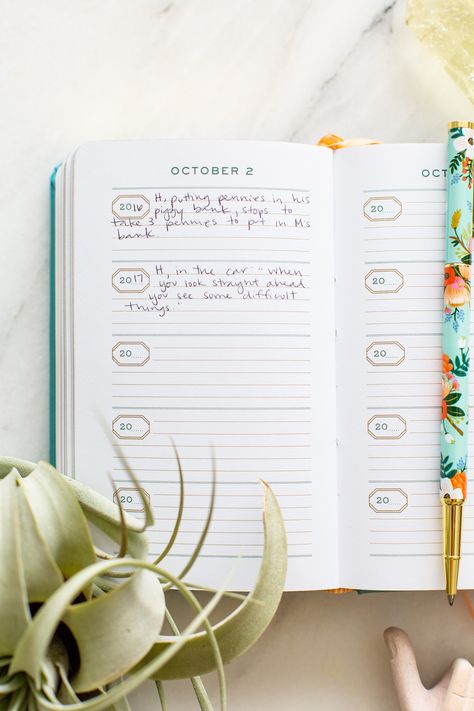 OCTOBER 2
2016 H, putting pennies in his
piggy bank, stops to
take 3 pennies to put in M's
bank.
2017 H, in the car: "When
you look straight ahead
you see some difficult
things."
20
20
20
OCT
20
20
20
20
20